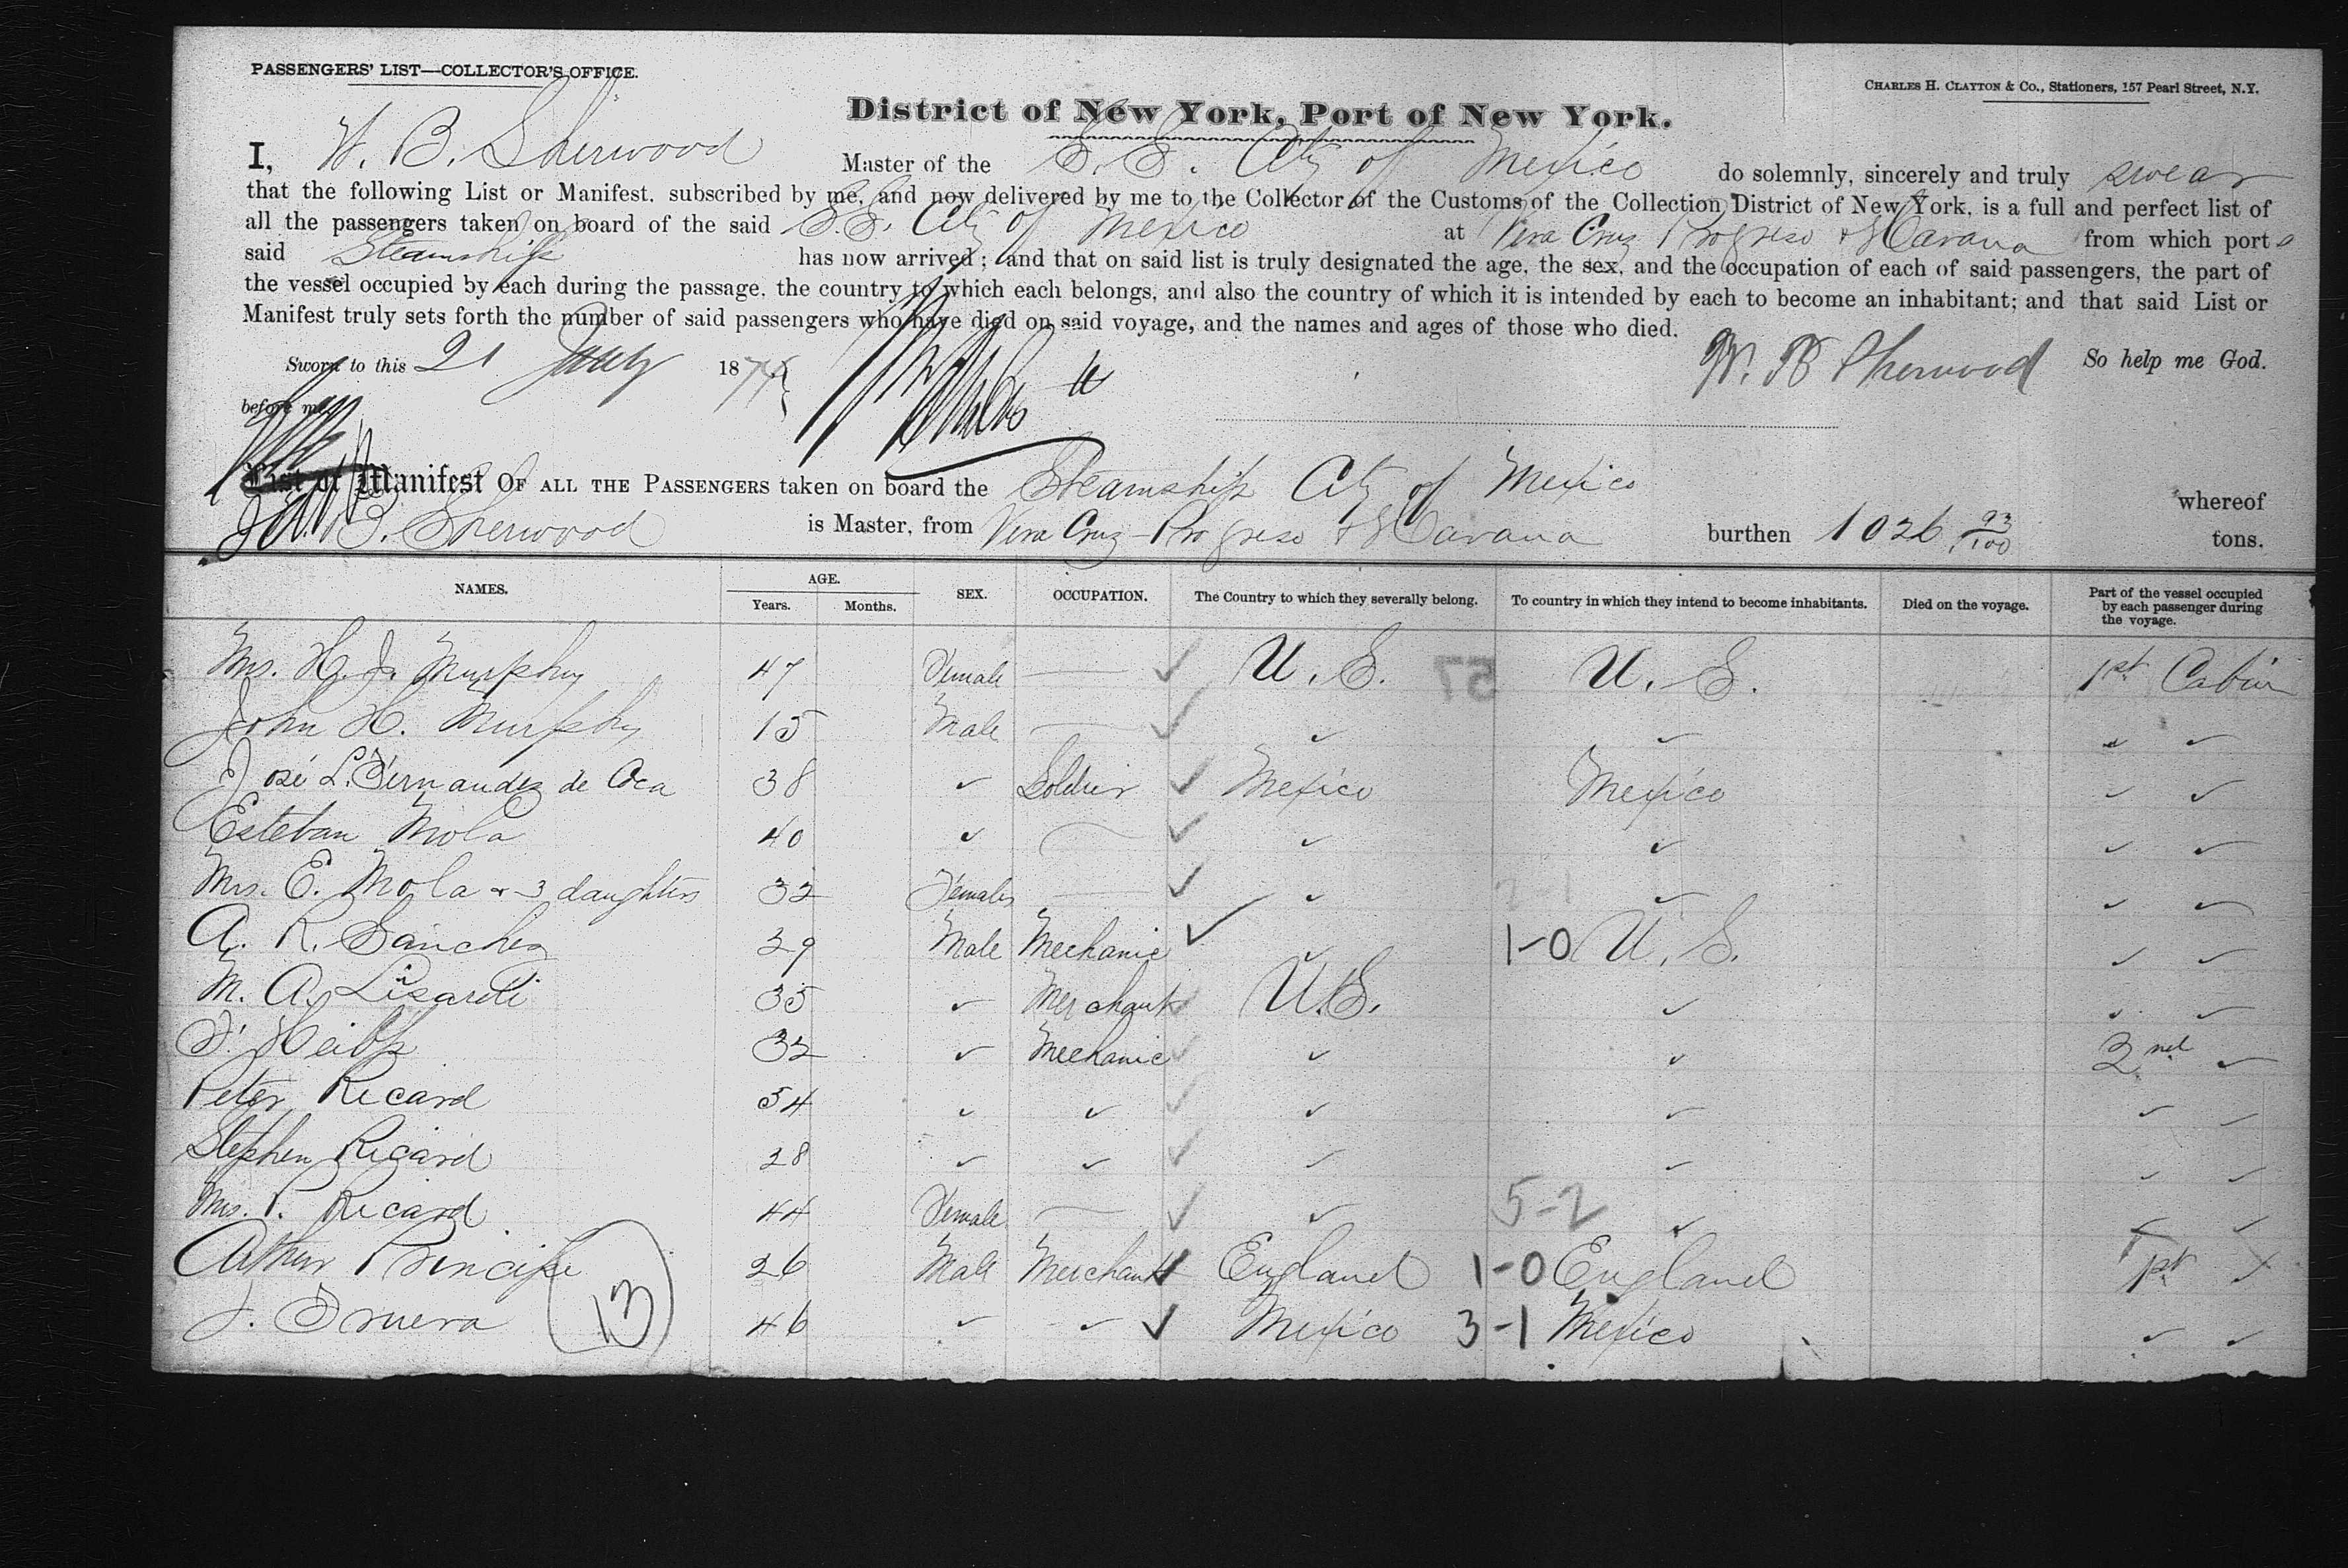 PASSENGERS' LIST—COLLECTOR'S OFFICE.
CHARLES H. CLAYTON & Co., Stationers, 157 Pearl Street, N.Y.
District of New York, Port of New York.
I, W. B. Sherwood Master of the S.S. City of Mexico do solemnly, sincerely and truly swear
that the following List or Manifest, subscribed by me, and now delivered by me to the Collector of the Customs of the Collection District of New York, is a full and perfect list of
all the passengers taken on board of the said S.S. City of Mexico at Vera Cruz Progreso & Havana from which ports
said Steamship has now arrived; and that on said list is truly designated the age, the sex, and the occupation of each of said passengers, the part of
the vessel occupied by each during the passage, the country to which each belongs, and also the country of which it is intended by each to become an inhabitant; and that said List or
Manifest truly sets forth the number of said passengers who have died on said voyage, and the names and ages of those who died.
Sworn to this 21 July 1874 W. B Sherwood So help me God.
before me
List or Manifest OF ALL THE PASSENGERS taken on board the Steamship City of Mexico whereof
W. B. Sherwood is Master, from Vera Cruz - Progreso & Havana burthen 1026 93/100 tons.
NAMES. AGE. Years. Months. SEX. OCCUPATION. The Country to which they severally belong. To country in which they intend to become inhabitants. Died on the voyage. Part of the vessel occupied by each passenger during the voyage.
Mrs. H. J. Murphy 47 Female — ✓ U. S. 57 U. S. 1st Cabin
John H. Murphy 15 Male — ✓ ✓ ✓ " ✓
José L. Fernandez de Oca 38 ✓ Soldier ✓ Mexico Mexico ✓ ✓
Esteban Mola 40 ✓ — ✓ ✓ ✓ ✓ ✓
Mrs. E. Mola & 3 daughters 32 Females — ✓ ✓ 2-1 ✓ ✓ ✓
A. R. Sanchez 29 Male Mechanic ✓ ✓ 1-0 U. S. ✓ ✓
M. A. Lisardi 35 ✓ Merchant ✓ U.S. ✓ ✓ ✓
F. 32 ✓ Mechanic ✓ ✓ ✓ 2nd ✓
Peter Ricard 54 ✓ ✓ ✓ ✓ ✓ ✓ ✓
Stephen Ricard 28 ✓ ✓ ✓ ✓ ✓ ✓ ✓
Mrs. P. Ricard 44 Female — ✓ ✓ 5-2 ✓ ✓ ✓
Arthur Principe 26 Male Merchant ✓ England 1-0 England 1st ✓
J. 13 46 ✓ ✓ ✓ Mexico 3-1 Mexico ✓ ✓